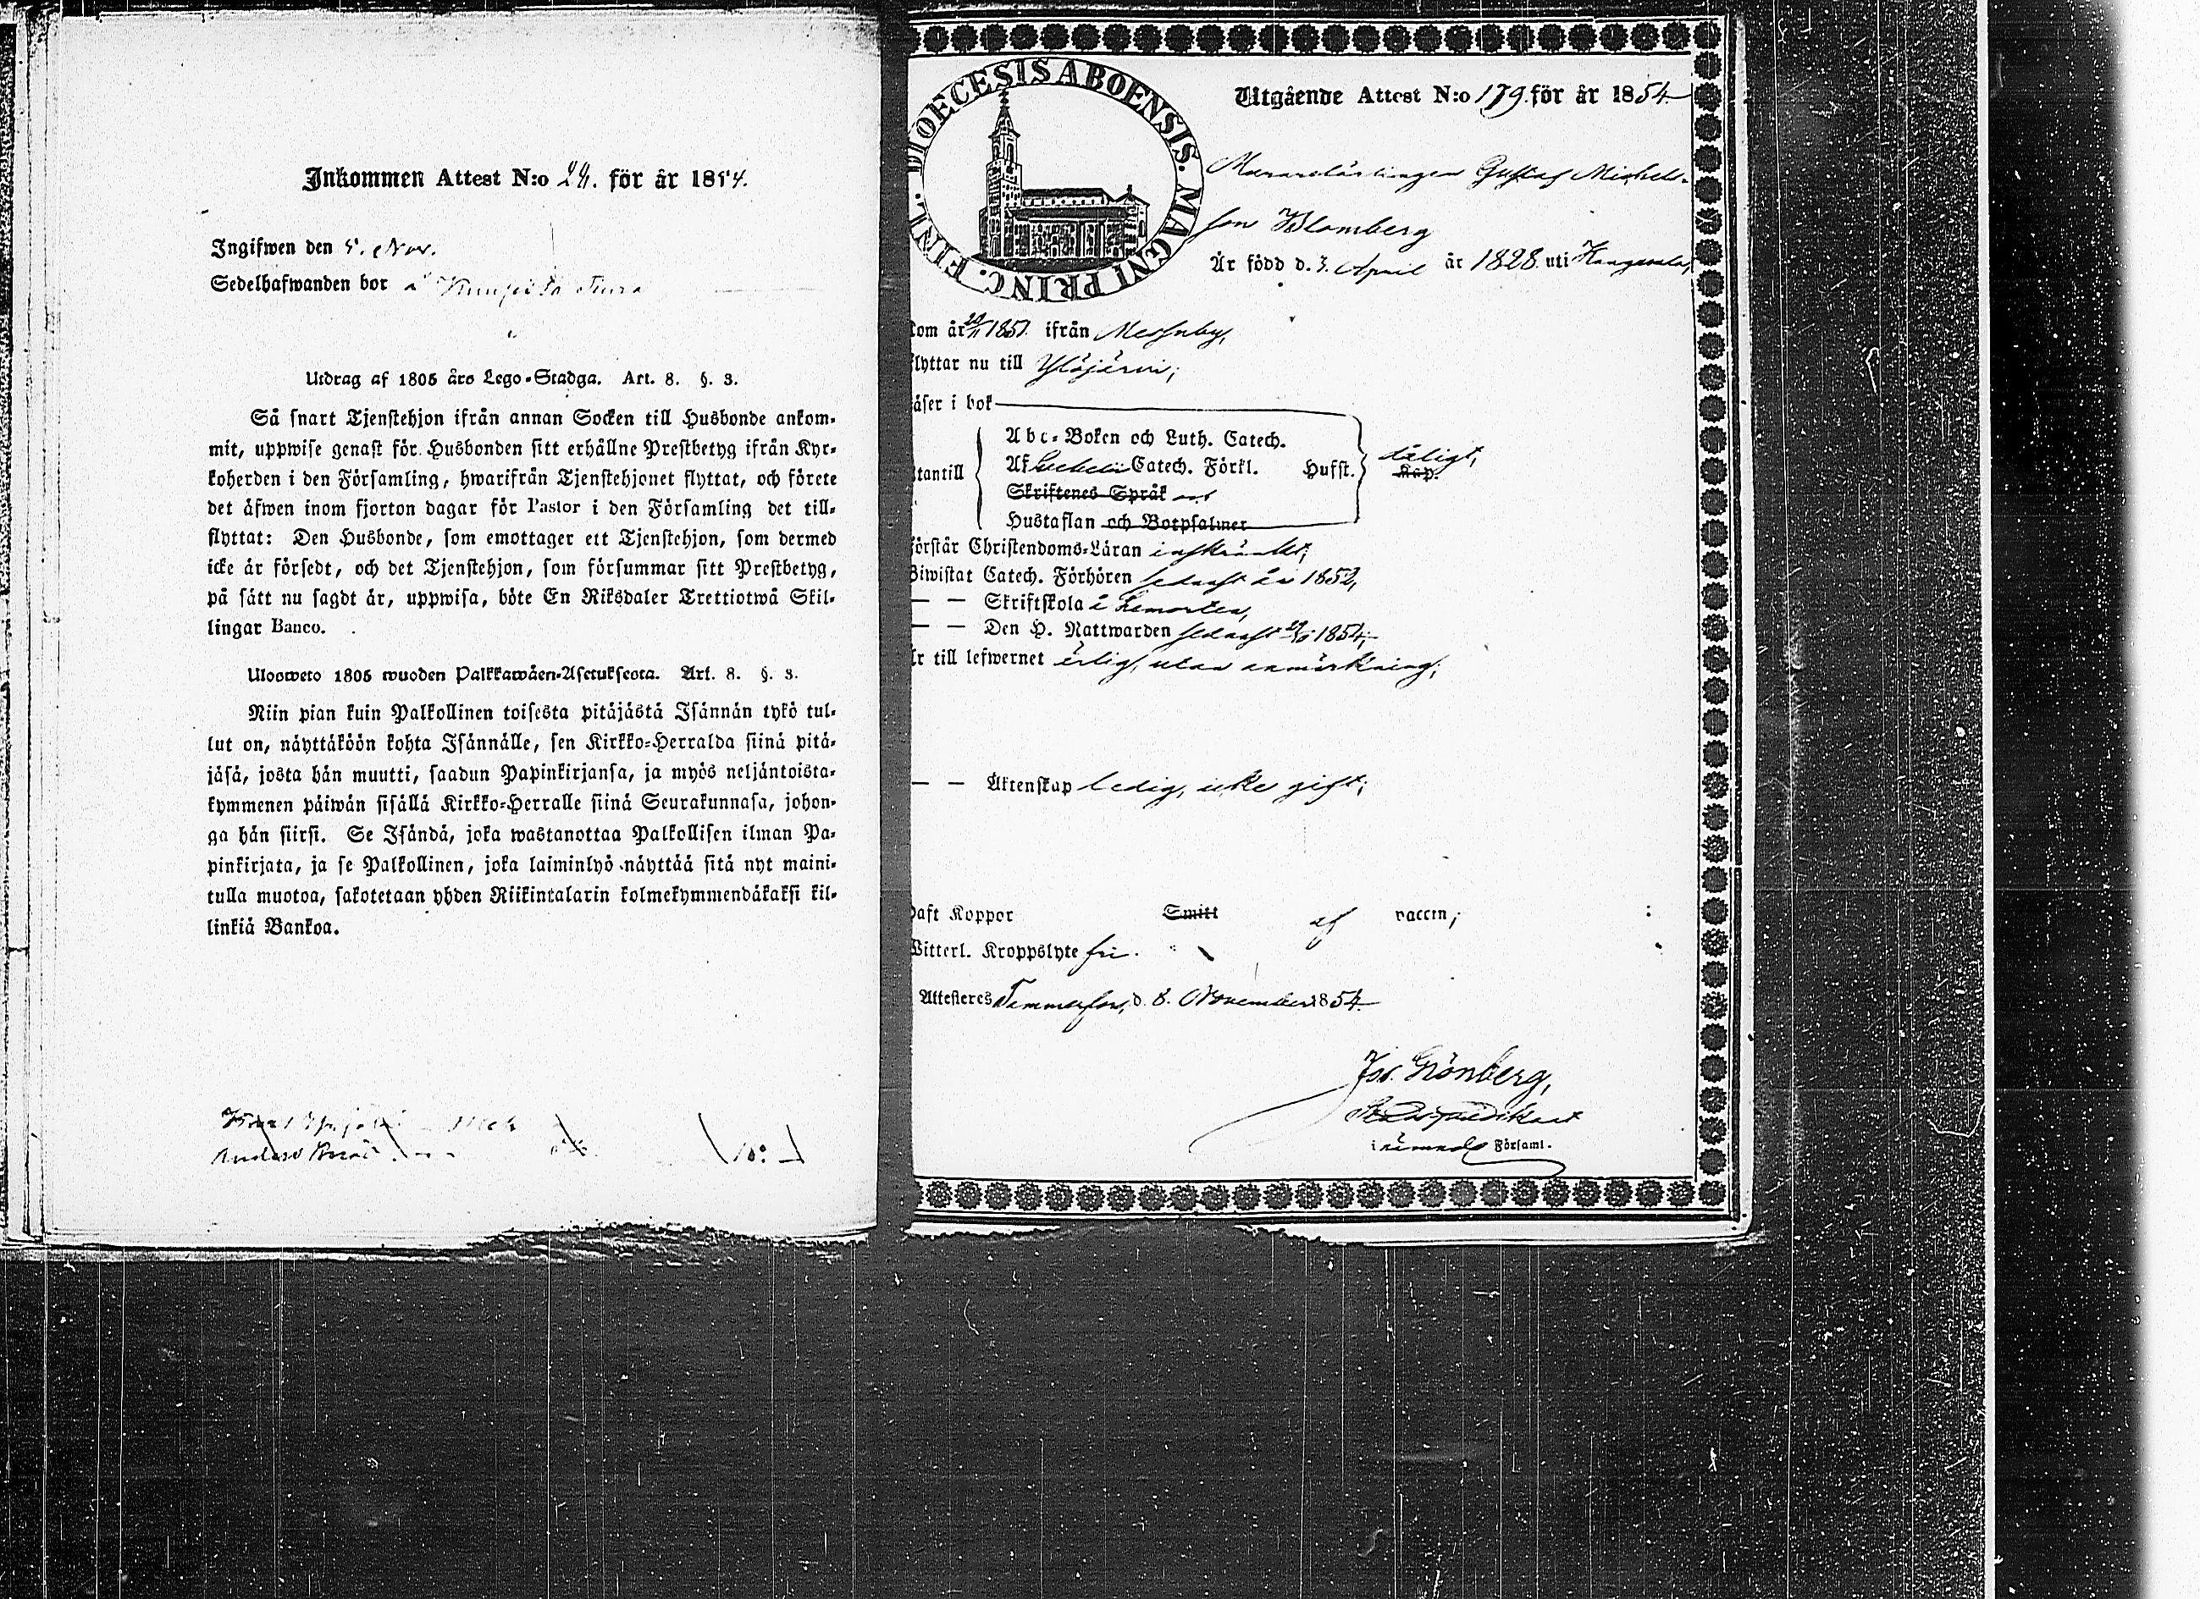 Inkommen Attest N:o 24. för år 1854.
Ingifwen den 5. Nov.
Sedelhafwanden bor å
Utdrag af 1805 års Lego-Stadga. Art. 8. §. 3.
Så snart Tjenstehjon ifrån annan Socken till Husbonde ankom-
mit, uppwise genast för Husbonden sitt erhållne Prestbetyg ifrån Kyr-
koherden i den Församling, hwarifrån Tjenstehjonet flyttat, och förete
det äfwen inom fjorton dagar för Pastor i den Församling det till-
flyttat: Den Husbonde, som emottager ett Tjenstehjon, som dermed
icke är försedt, och det Tjenstehjon, som försummar sitt Prestbetyg,
på sätt nu sagdt är, uppwisa, böte En Riksdaler Trettiotwå Skil-
lingar Banco.
Uloosweto 1805 wuoden Palkkawäen-Asetuksesta. Art. 8. §. 3.
Niin pian kuin Palkollinen toisesta pitäjästä Isännän tykö tul-
lut on, näyttäköön kohta Isännälle, sen Kirkko-Herralda siinä pitä-
jäsä, josta hän muutti, saadun Papinkirjansa, ja myös neljäntoista-
kymmenen päiwän sisällä Kirkko-Herralle siinä Seurakunnasa, johon-
ga hän siirsi. Se Isändä, joka wastanottaa Palkollisen ilman Pa-
pinkirjata, ja se Palkollinen, joka laiminlyö näyttää sitä nyt maini-
tulla muotoa, sakotetaan yhden Riikintalarin kolmekymmendäkaksi kil-
linkiä Bankoa.
DIOECESIS ABOENSIS. MAGNI PRINC. FINL.
Utgående Attest N:o 179. för år 1854
Murarelärlingen Gustaf Michels-
son Blomberg
Är född d. 3. April år 1828 uti Kangasala,
kom år 1851. ifrån Messuby,
flyttar nu till Ylöjärvi;
läser i bok
utantill
Abc-Boken och Luth. Catech.
Af Catech. Förkl. Husst.
Skriftenes Språk
Hustaflan och Botpsalmer
dåligt,
Kap.
förstår Christendoms-Läran inskränkt;
Biwistat Catech. Förhören sednast år 1852,
— — Skriftskola å hemorten,
— — Den H. Nattwarden sednast 1854;
Är till lefwernet ärlig, utan anmärkning;
— — Äktenskap ledig, icke gift;
Haft Koppor Smitt af vaccin;
Witterl. Kroppslyte fri.
Attesteres Tammerfors, d. 8. November 1854.
Jos. Grönberg,
Stadspredikant
i nämnde Församl.